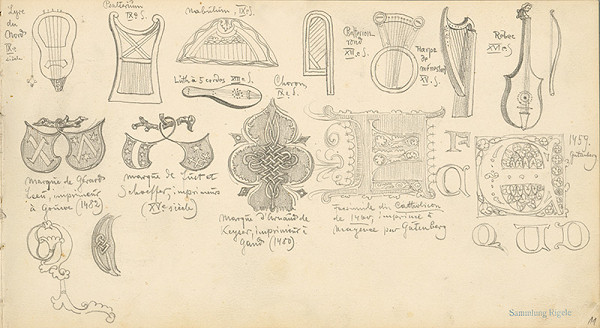 Lyre
du
Nord
IXe
siècle
Psalterium
IXe S.
Nabulum, IXe S.
Luth à 5 cordes XIIIe S.
Choron
IXe S.
Psalterion
rond
XIIe S.
Harpe
de
ménestrel
XVe S.
Rebec
XVIe S.
marque de Gérard
Leeu, imprimeur
à Gouwe (1482)
marque de Fust et
Schoeffer, imprimeurs
XVe siècle
Marque d'Arnaud de
Keyser, imprimeur à
Gand (1480)
Facsimile du Catholicon
de 1460, imprimé à
Mayence par Gutenberg
1459
Gutenberg
Sammlung Rigele